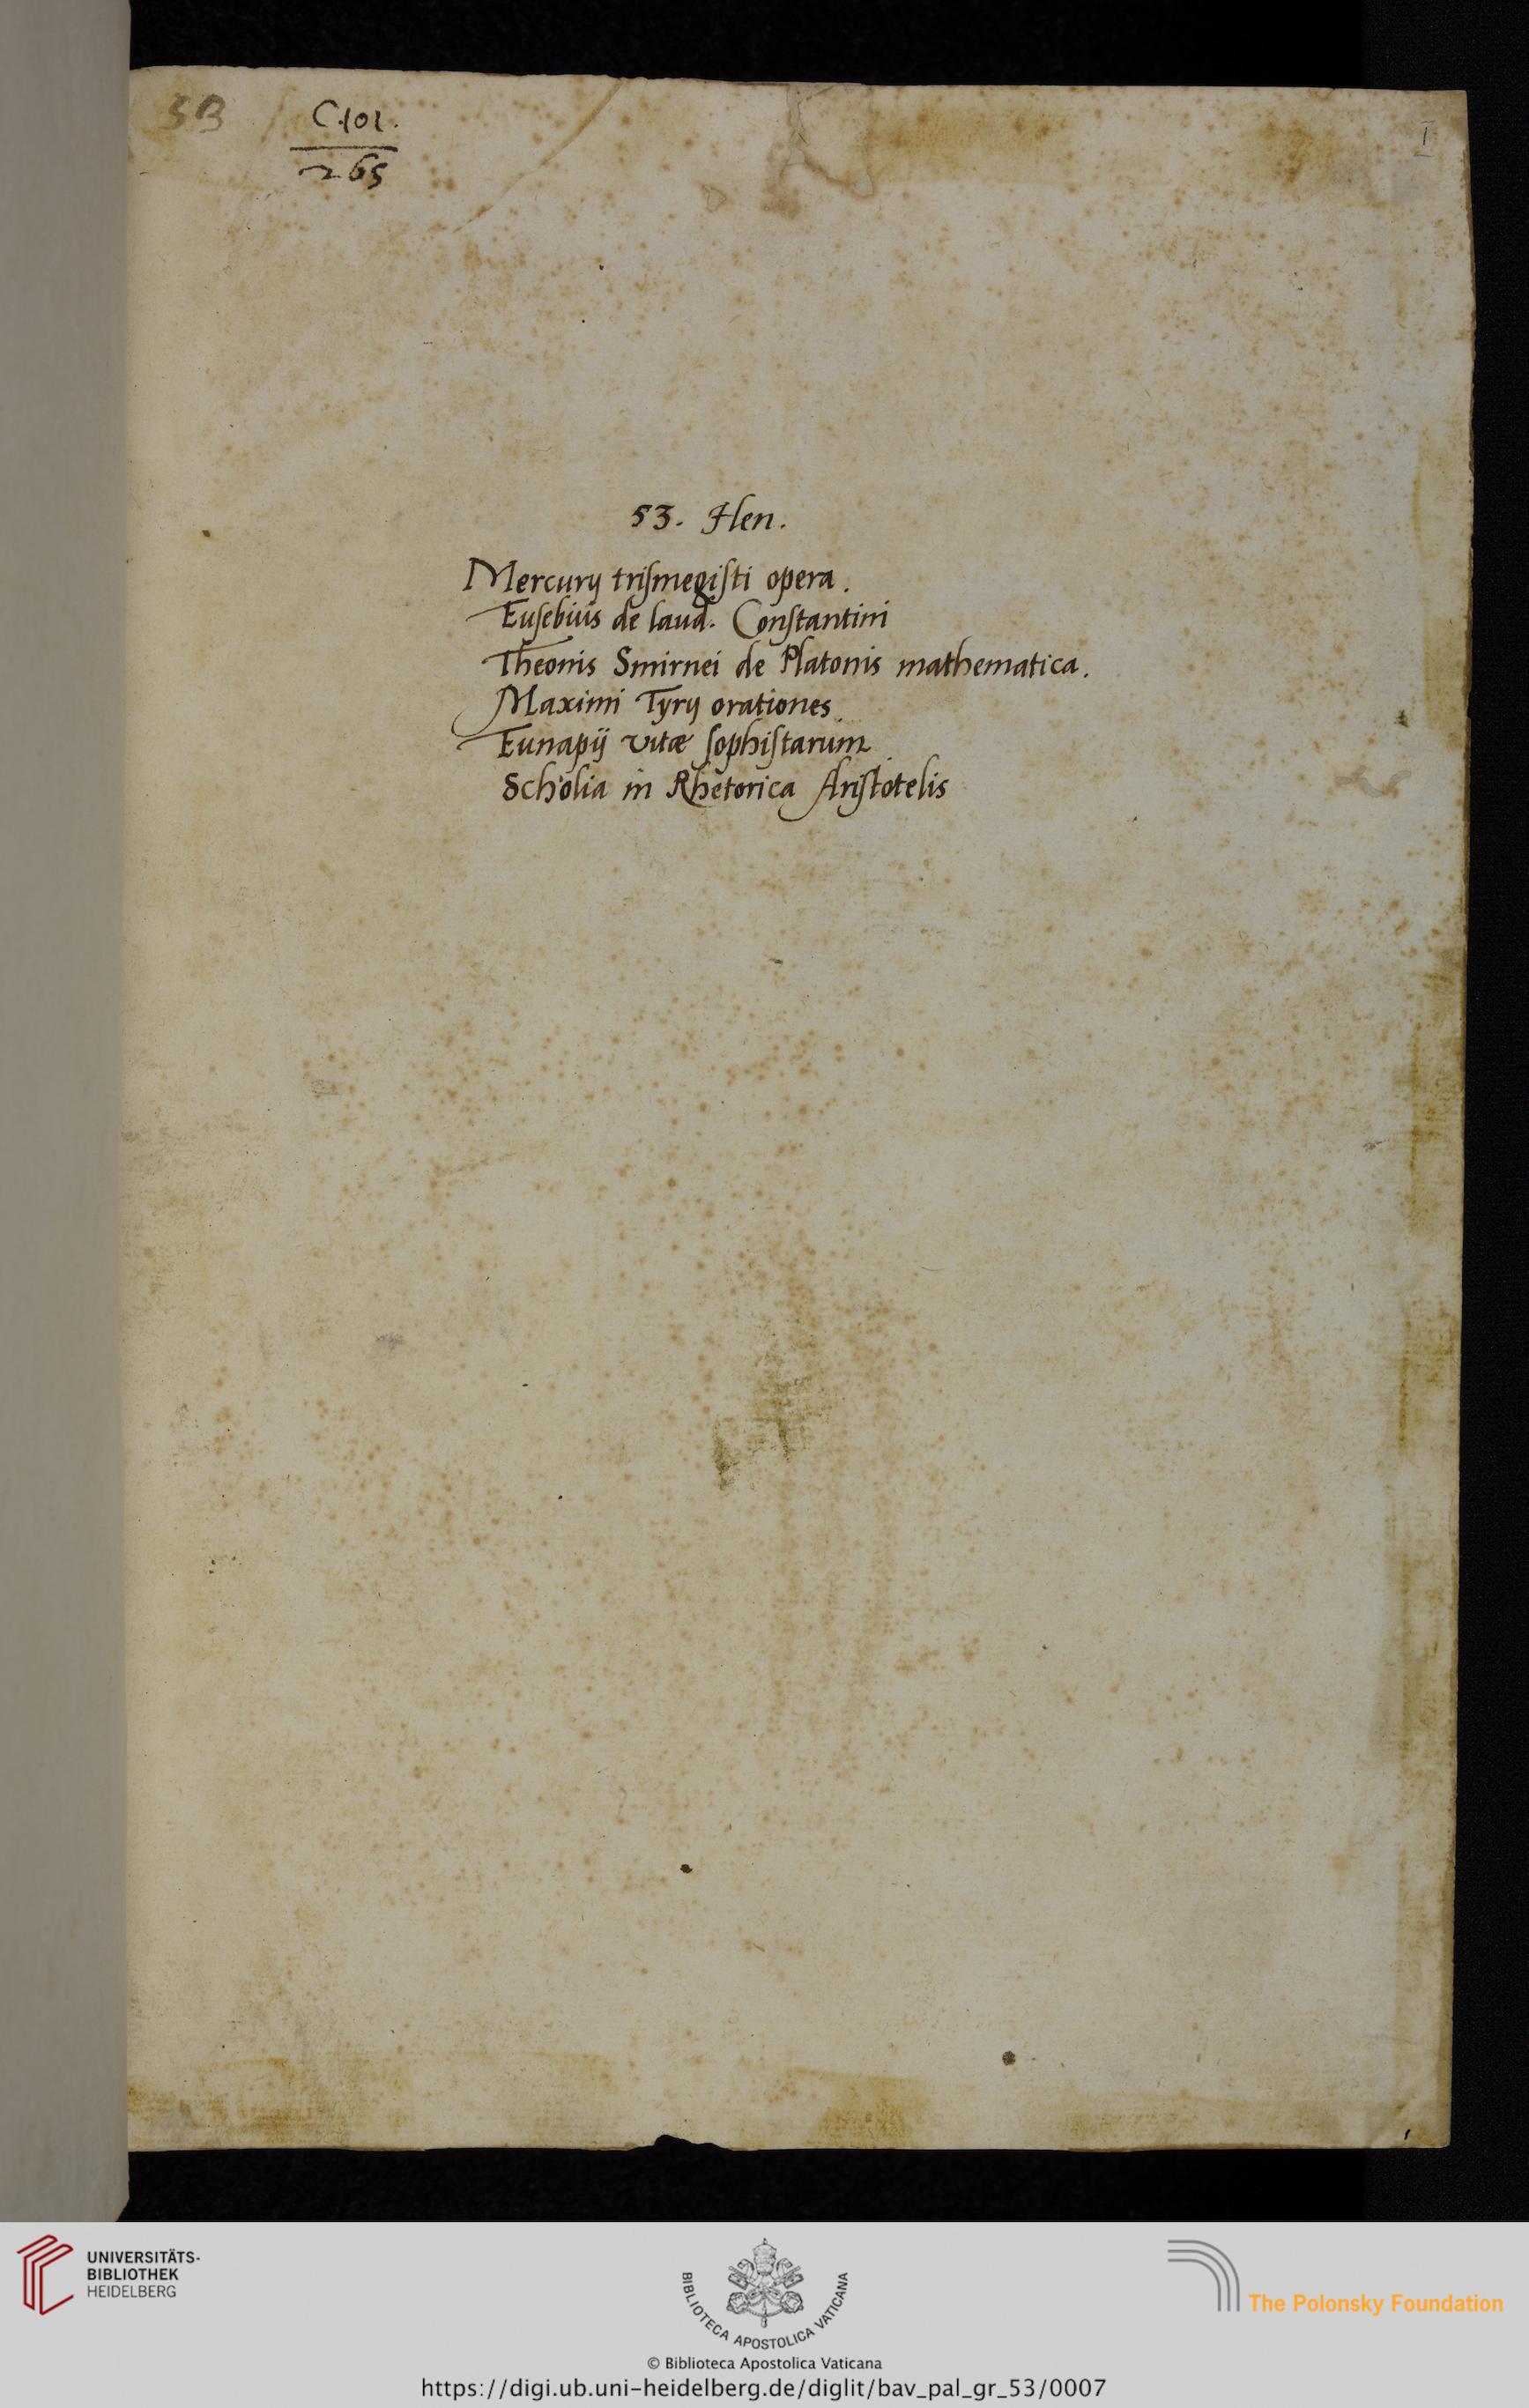 53
C.101.
265
I
53. Hen.
Mercurij trismegisti opera.
Eusebius de laud. Constantini
Theonis Smirnei de Platonis mathematica.
Maximi Tyrij orationes.
Eunapij vitæ sophistarum
Scholia in Rhetorica Aristotelis
UNIVERSITÄTS-
BIBLIOTHEK
HEIDELBERG
BIBLIOTECA APOSTOLICA VATICANA
The Polonsky Foundation
© Biblioteca Apostolica Vaticana
https://digi.ub.uni-heidelberg.de/diglit/bav_pal_gr_53/0007